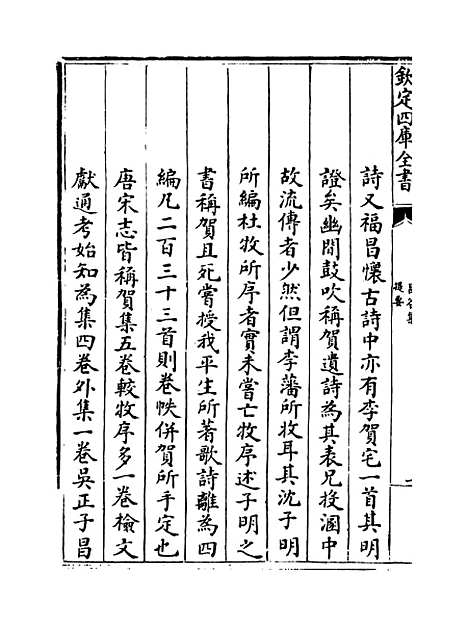 欽定四庫全書
昌谷集
提要
詩又福昌懷古詩中亦有李賀宅一首其明
證矣幽閒鼓吹稱賀遺詩為其表兄投溷中
故流傳者少然但謂李藩所收耳其沈子明
所編杜牧所序者實未嘗亡牧序述子明之
書稱賀且死嘗授我平生所著歌詩離為四
編凡二百三十三首則卷帙併賀所手定也
唐宋志皆稱賀集五卷較牧序多一卷檢文
獻通考始知為集四卷外集一卷吳正子昌